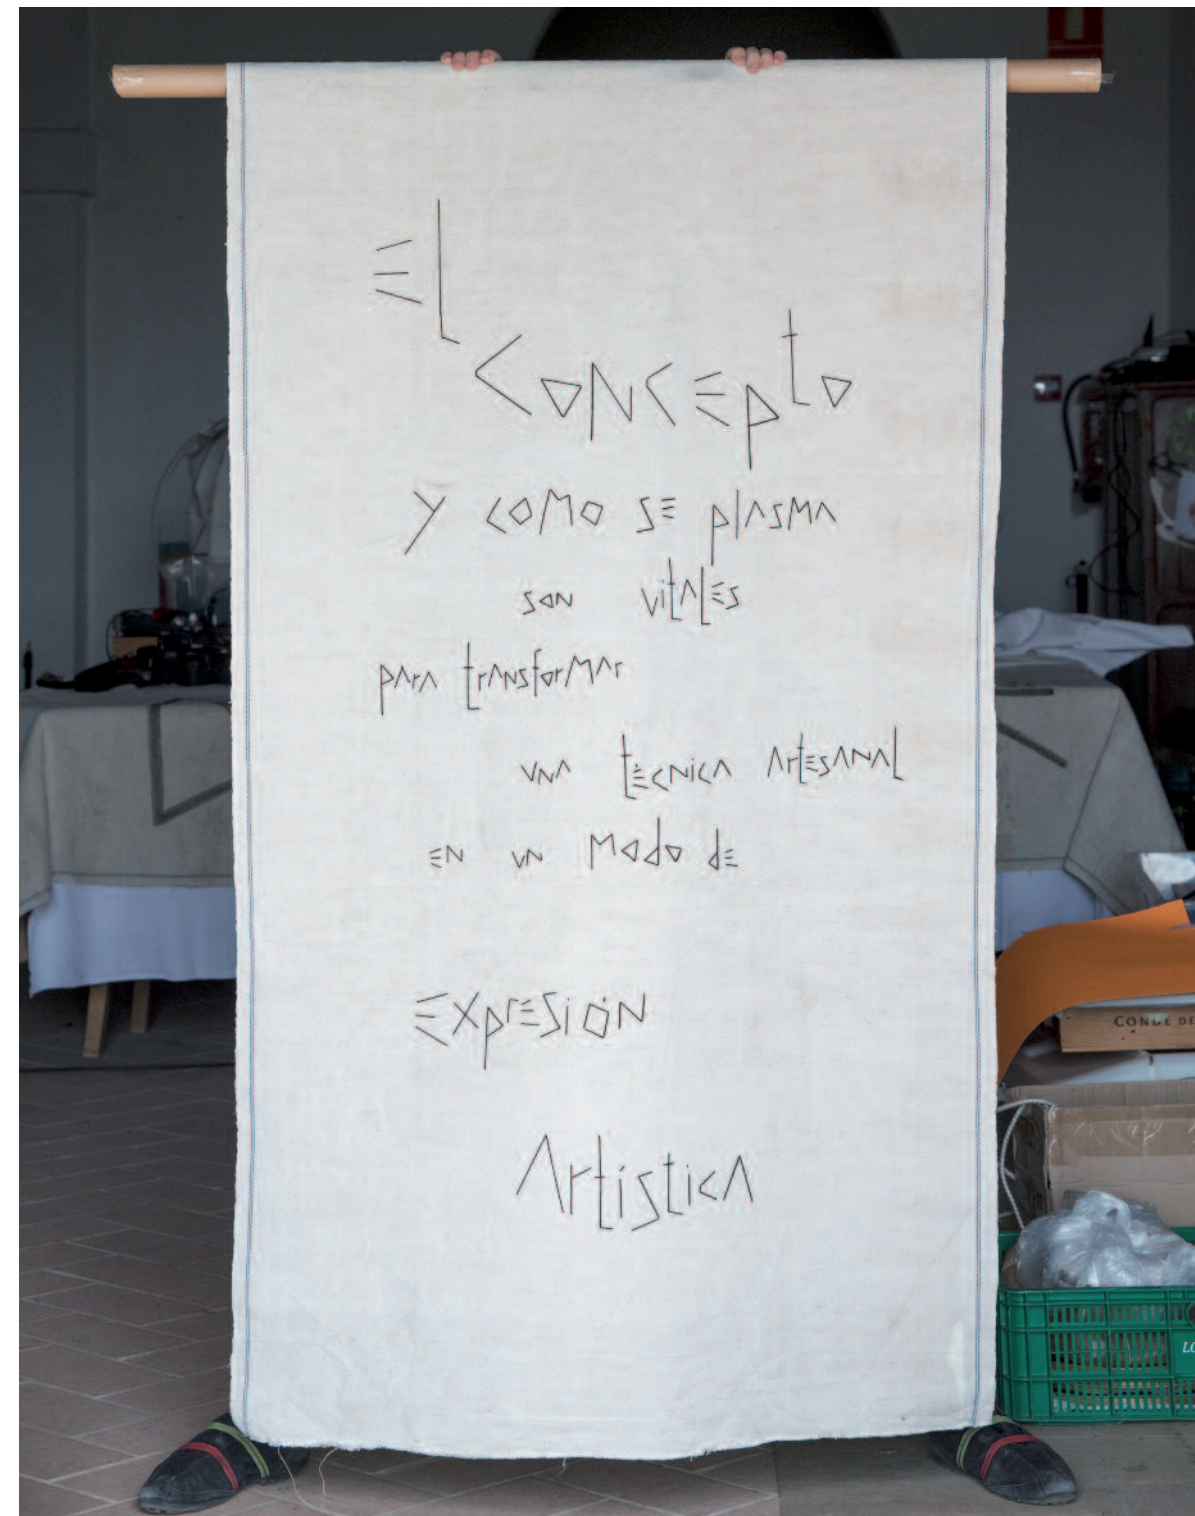 El
concepto
y como se plasma
son vitales
para transformar
una técnica artesanal
en un modo de
Expresión
Artística
CONDE DE
LO